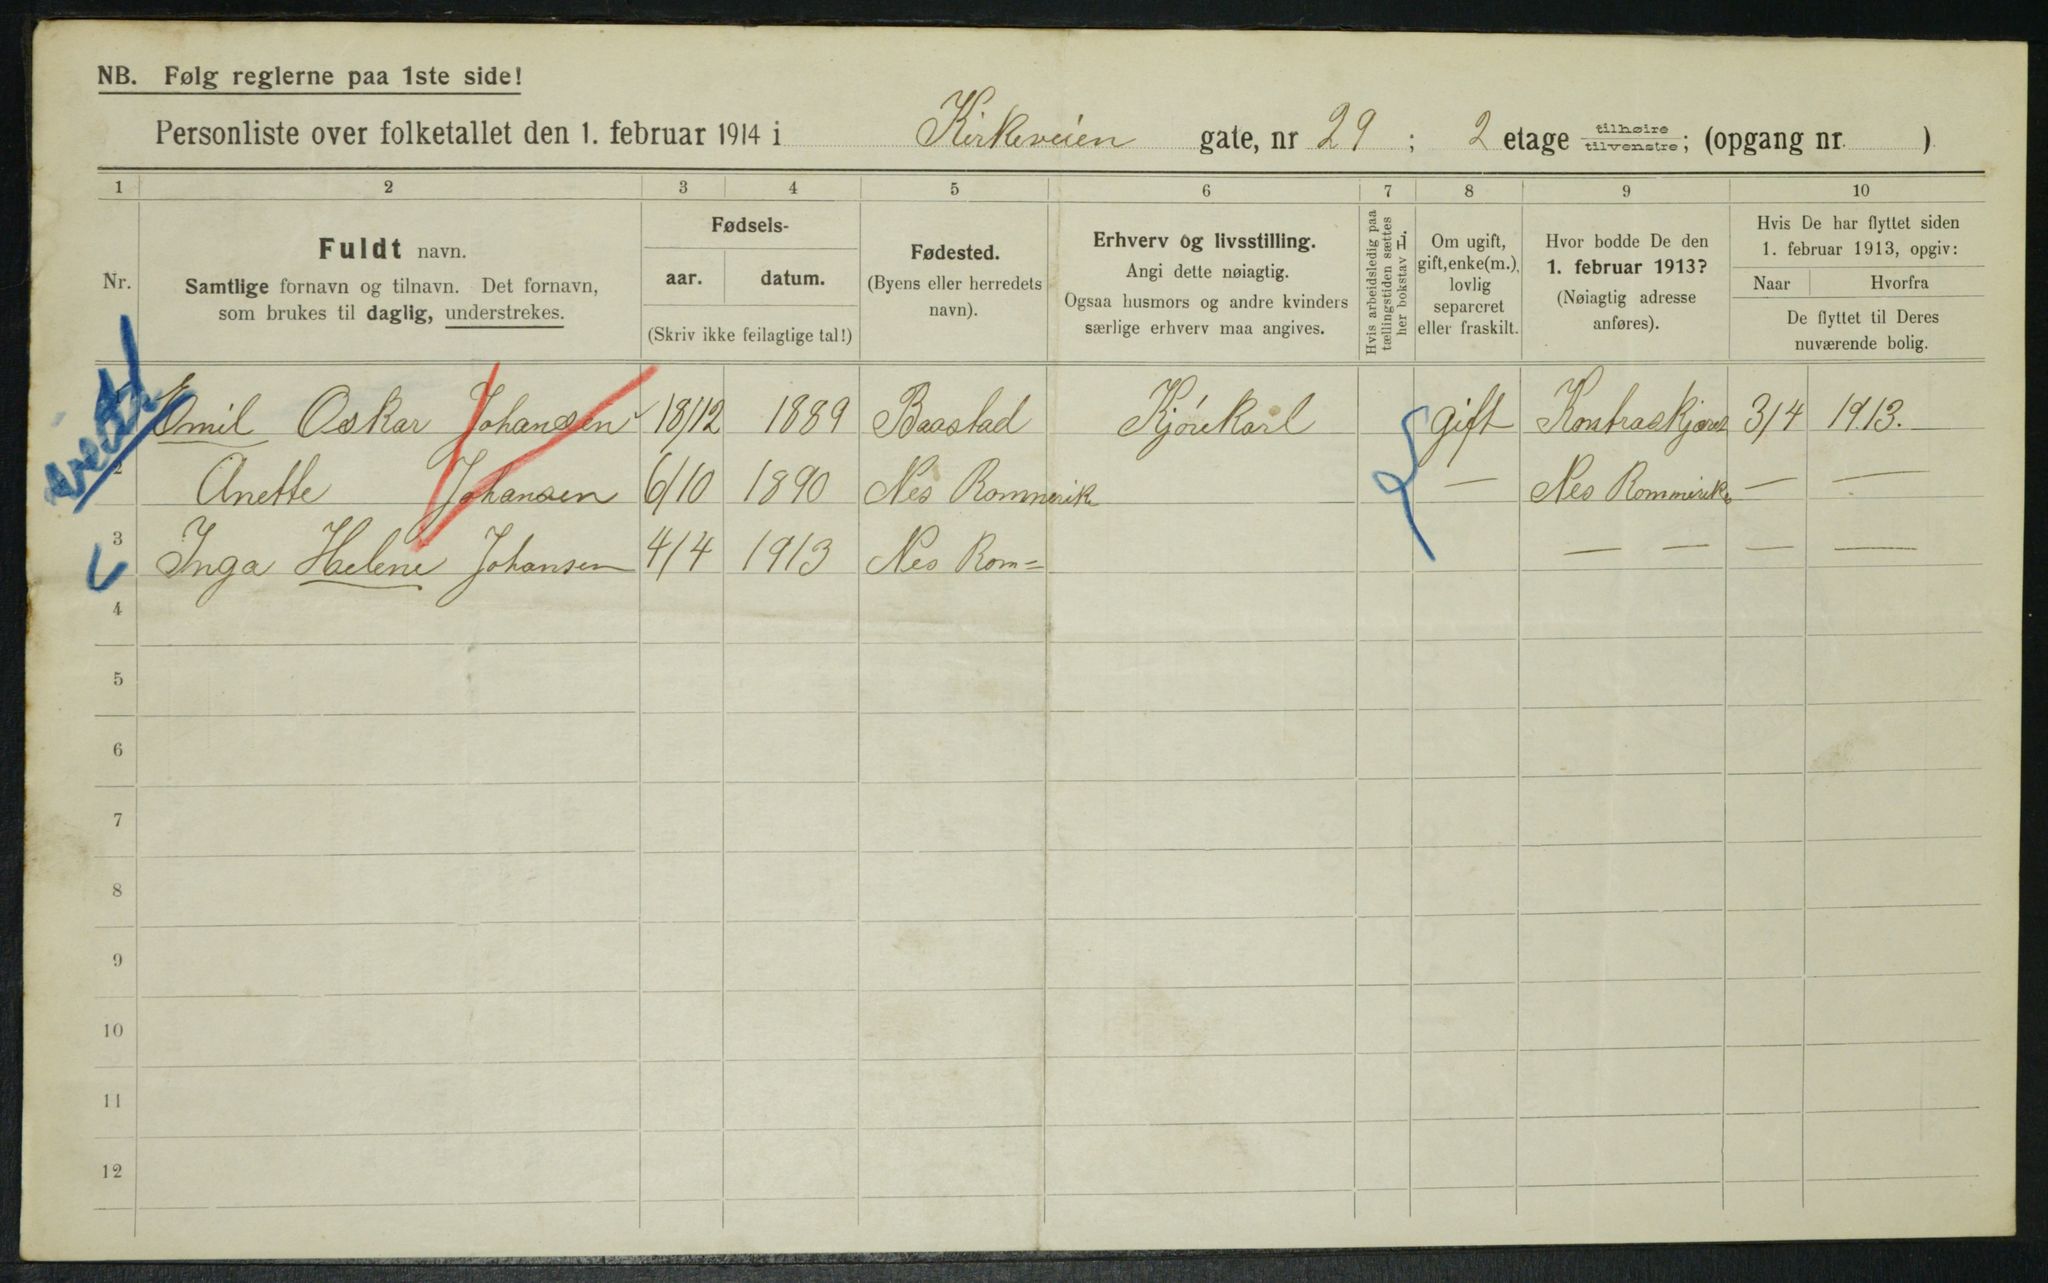 NB. Følg reglerne paa 1ste side!
Personliste over folketallet den 1. februar 1914 i Kirkeveien gate, nr 29; 2 etage tilhøire / tilvenstre; (opgang nr. )
1 2 3 4 5 6 7 8 9 10
Nr.
Fuldt navn.
Samtlige fornavn og tilnavn. Det fornavn,
som brukes til daglig, understrekes.
Fødsels-
aar. datum.
(Skriv ikke feilagtige tal!)
Fødested.
(Byens eller herredets
navn).
Erhverv og livsstilling.
Angi dette nøiagtig.
Ogsaa husmors og andre kvinders
særlige erhverv maa angives.
Hvis arbeidsledig paa
tællingstiden sættes
her bokstav L.
Om ugift,
gift, enke(m.),
lovlig
separeret
eller fraskilt.
Hvor bodde De den
1. februar 1913?
(Nøiagtig adresse
anføres).
Hvis De har flyttet siden
1. februar 1913, opgiv:
Naar Hvorfra
De flyttet til Deres
nuværende bolig.
Emil Oskar Johansen 18/12 1889 Baastad Kjørekarl gift 3/4 1913.
2 Anette Johansen 6/10 1890 Nes Rommerik — Nes Rommerike — —
3 Inga Helene Johansen 4/4 1913 Nes Rom= — — — —
4
5
6
7
8
9
10
11
12